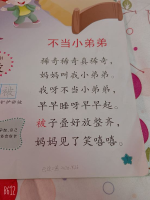 不当小弟弟
稀奇稀奇真稀奇，
妈妈叫我小弟弟。
我呀不当小弟弟，
早早睡呀早早起。
被子叠好放整齐，
妈妈见了笑嘻嘻。